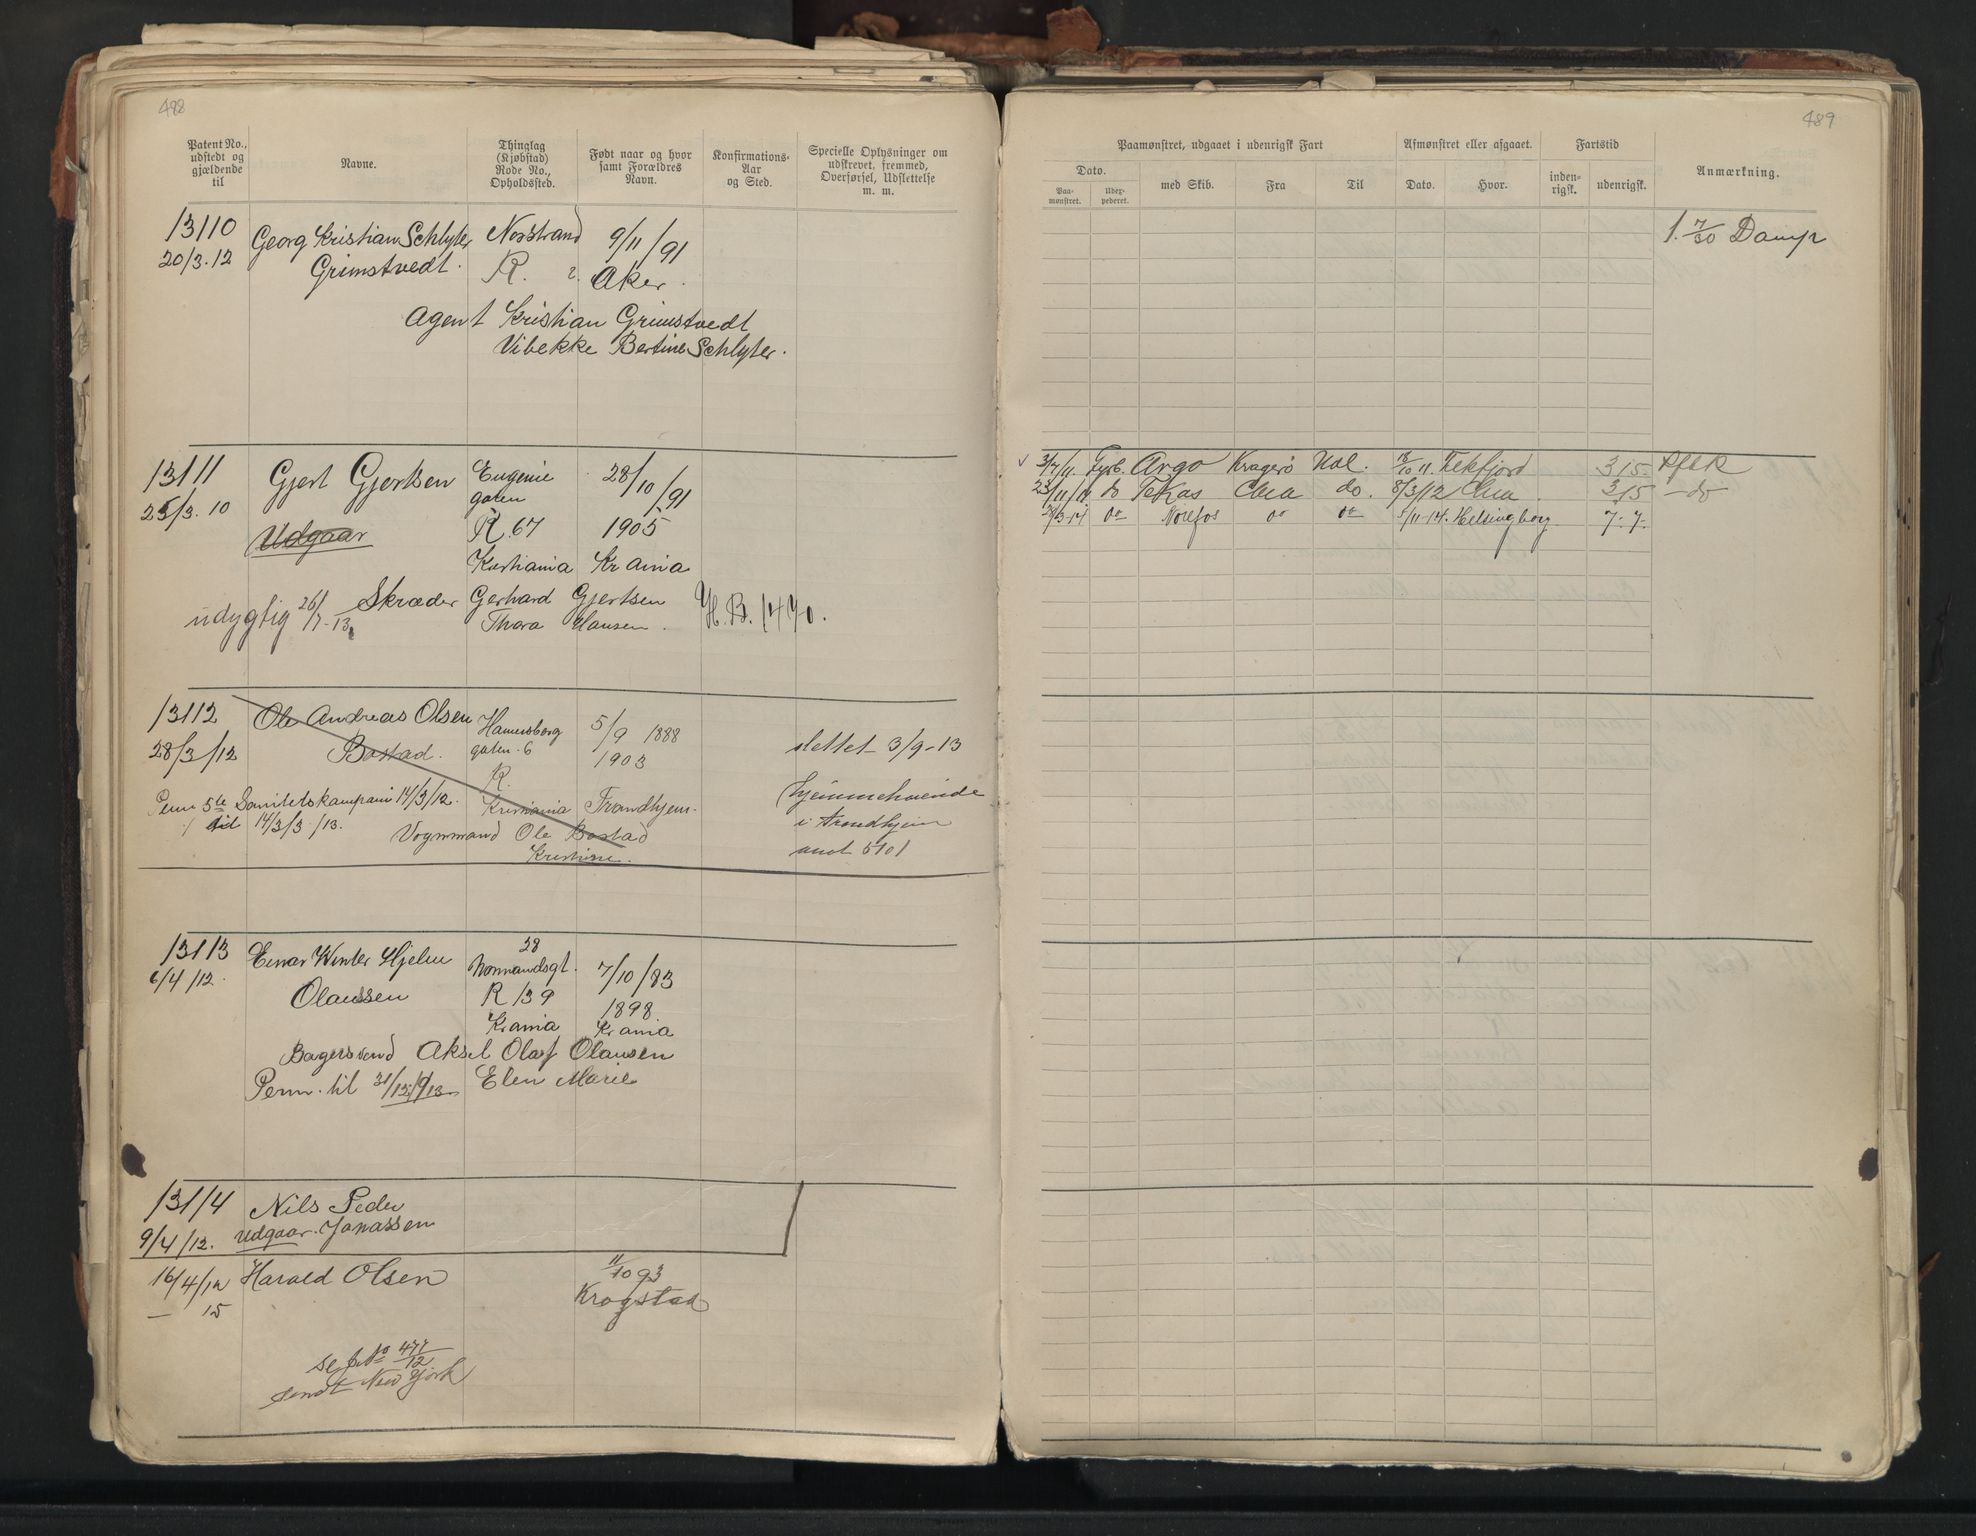 488
Patent No., udstedt og gjældende til
Navne.
Thinglag (Kjøbstad) Rode No., Opholdssted.
Født naar og hvor samt Forældres Navn.
Konfirmations- Aar og Sted.
Specielle Oplysninger om udskrevet, fremmed, Overførsel, Udslettelse m. m.
13110 Georg Kristian Schlyter Nordstrand 9/11/91
20/3.12 Grimstvedt. R. Aker.
Agent Kristian Grimstvedt
Vibekke Bertine Schlyter.
13111 Gjert Gjertsen Eugenie 28/10/91
gaten
25/3.10 Udgaar R.67 1905
Kristiania Kr ania
udygtig 26/7-13 Skræder Gerhard Gjertsen H.B.1470.
Thora Hansen.
13112 Ole Andreas Olsen Hamersborg 5/9 1888
28/3/12 Bostad. gaten.6 1903 slettet 3/9-13
R.
Perm 5te Sanitetskompani 14/3/12. Kristiania Trondhjem. hjemmehørende
til 14/3/3/13. Vognmand Ole Bostad i Trondhjem
Kristine. anot 5101
13113 Einar Winter Hjelm 28
6/4/12. Normandsgt. 7/10/83
Olaussen R 139 1898
Krania Kr ania
Bagersvend Aksel Olaf Olausen
Perm. til 31/12/13 Elen Marie
13114 Nils Peder
9/4/12. Udgaar. Jonassen
16/4/12 Harald Olsen 11/10 93
— 15 Krogstad
se No 477/12
sendt New York
489
Paamønstret, udgaaet i udenrigsk Fart
Afmønstret eller afgaaet.
Fartstid
Anmærkning.
Dato.
Paa- mønstret.
Udex- pederet.
med Skib.
Fra
Til
Dato.
Hvor.
inden- rigsk.
udenrigsk.
1. 7/30 Damp
3/7/11. Fyrb. Argo Kragerø Ual. 18/10 11. 315
23/11/11 do do. 8/3/12 315 - do
do do do 5/11-14. Helsingborg 7-7-